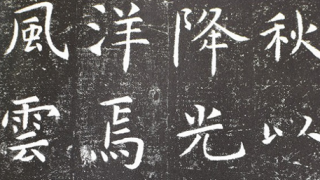 秋以
降光
洋焉
風雲